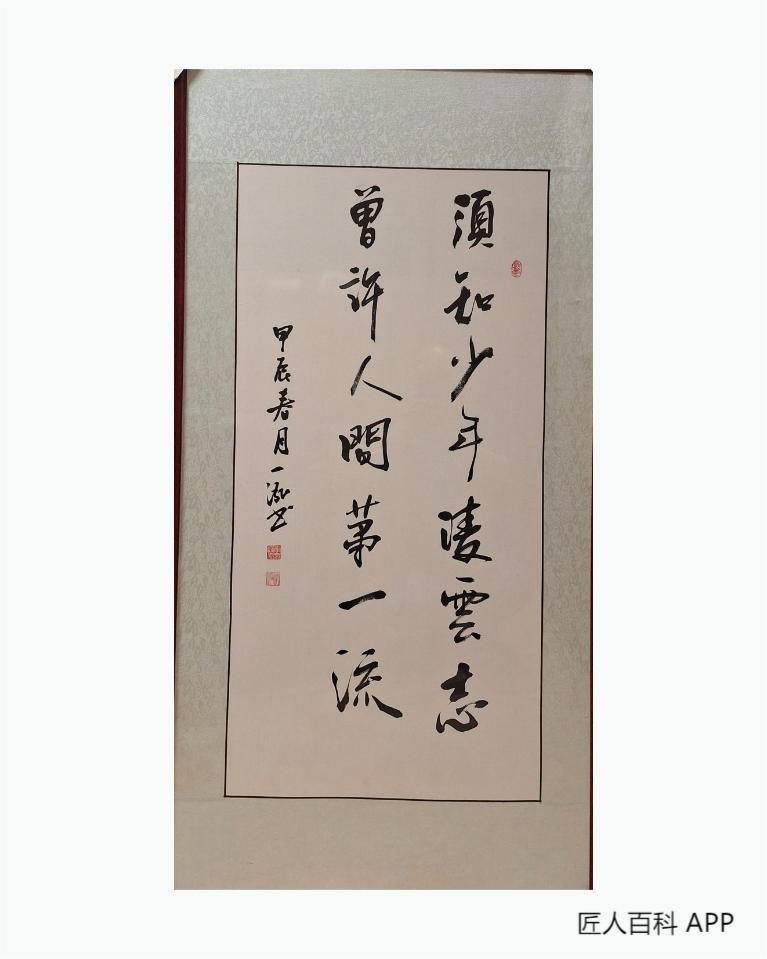 須知少年凌雲志
曾許人間第一流
甲辰春月一泓书
匠人百科 APP